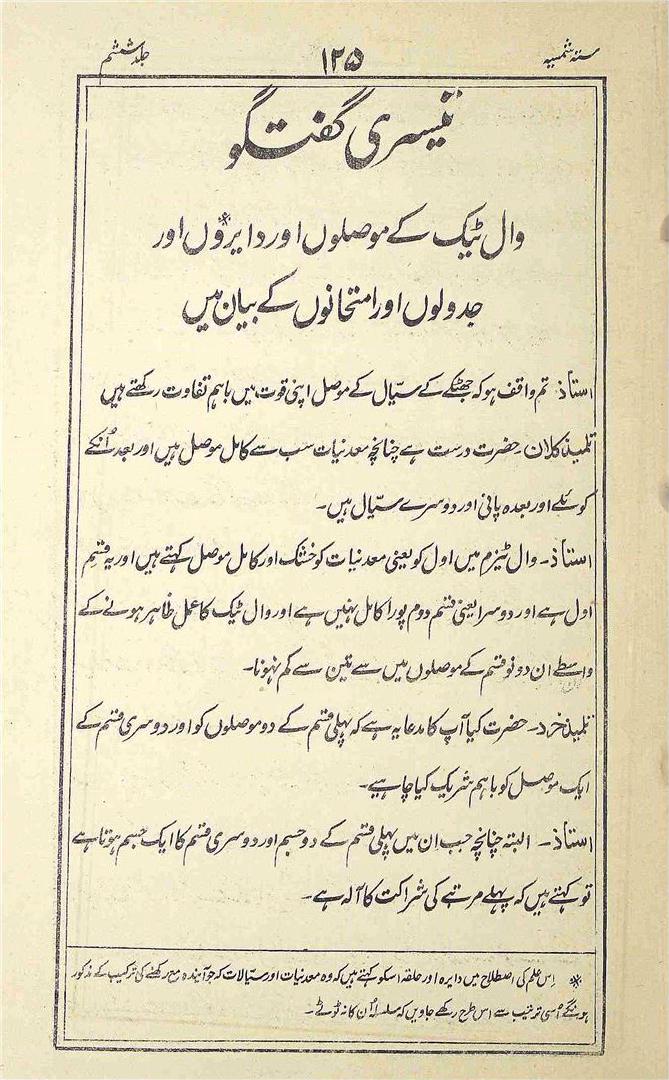 ستۂ شمسیہ ۱۲۵ جلد ششم
تیسری گفتگو
وال ٹیک کے موصلوں اور دایروں* اور
جدولوں اور امتحانوں کے بیان میں
استاذ۔ تم واقف ہو کہ جھٹکے کے سیّال کے موصل اپنی قوت میں باہم تفاوت رکھتے ہیں
تلمیذ کلان۔ حضرت درست ہے چنانچہ معدنیات سب سے کامل موصل ہیں اور بعد اُنکے
کوئلے اور بعدہ پانی اور دوسرے سیّال ہیں۔
استاذ۔ وال ٹیزم میں اول کو یعنی معدنیات کو خشک اور کامل موصل کہتے ہیں اور یہ قسم
اول ہے اور دوسرا یعنی قسم دوم پورا کامل نہیں ہے اور وال ٹیک کا عمل ظاہر ہونے کے
واسطے ان دونو قسم کے موصلوں میں سے تین سے کم نہونا۔
تلمیذ خرد۔ حضرت کیا آپ کا مدعا یہ ہے کہ پہلی قسم کے دو موصلوں کو اور دوسری قسم کے
ایک موصل کو باہم شریک کیا چاہیے۔
استاذ۔ البتہ چنانچہ جب اِن میں پہلی قسم کے دو جسم اور دوسری قسم کا ایک جسم ہوتا ہے
تو کہتے ہیں کہ پہلے مرتبے کی شراکت کا آلہ ہے۔
* اِس علم کی اصطلاح میں دایرہ اور حلقہ اسکو کہتے ہیں کہ وہ معدنیات اور سیّالات کہ جو آیندہ مع رکھنے کی ترکیب کے مذکور
ہونگے اُسی ترتیب سے اس طرح رکھے جاویں کہ سلسلہ اُن کا نہ ٹوٹے۔